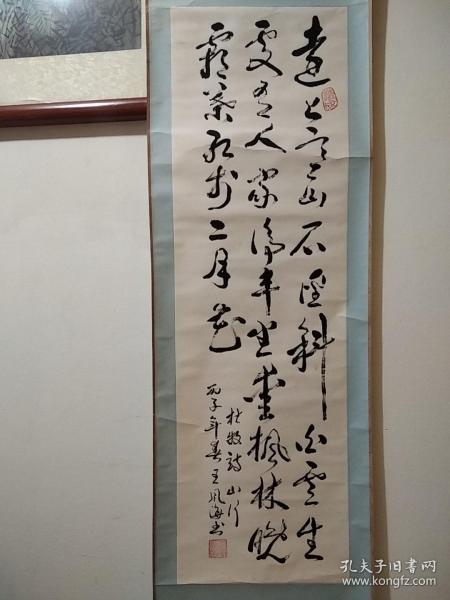 遠上寒山石徑斜白雲生
處有人家停車坐愛楓林晚
霜葉紅於二月花
杜牧詩 山行
丙子年春王风海书
孔夫子旧书网
www.kongfz.com